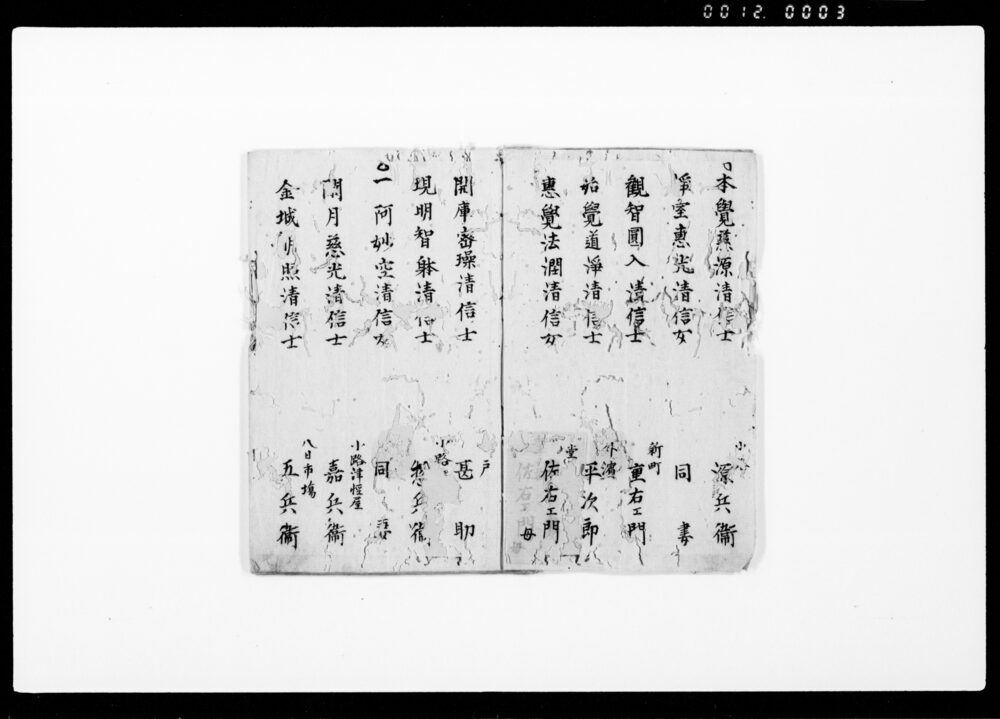 0012. 0003
本覺 源清信士
小 源兵衞
淨室惠光清信女
同 妻
觀智圓入清信士
新町 重右エ門
始覺道淨清信士
外濱 平次郎
惠覺法潤清信女
堂 佐右エ門 母
開庫密璪清信士
戸 甚助
現明智躰清信士
小路 惣兵衞
一阿妙空清信女
同
開月慈光清信士
小路津 屋 嘉兵衞
金城 照清信士
八日市塲 五兵衞